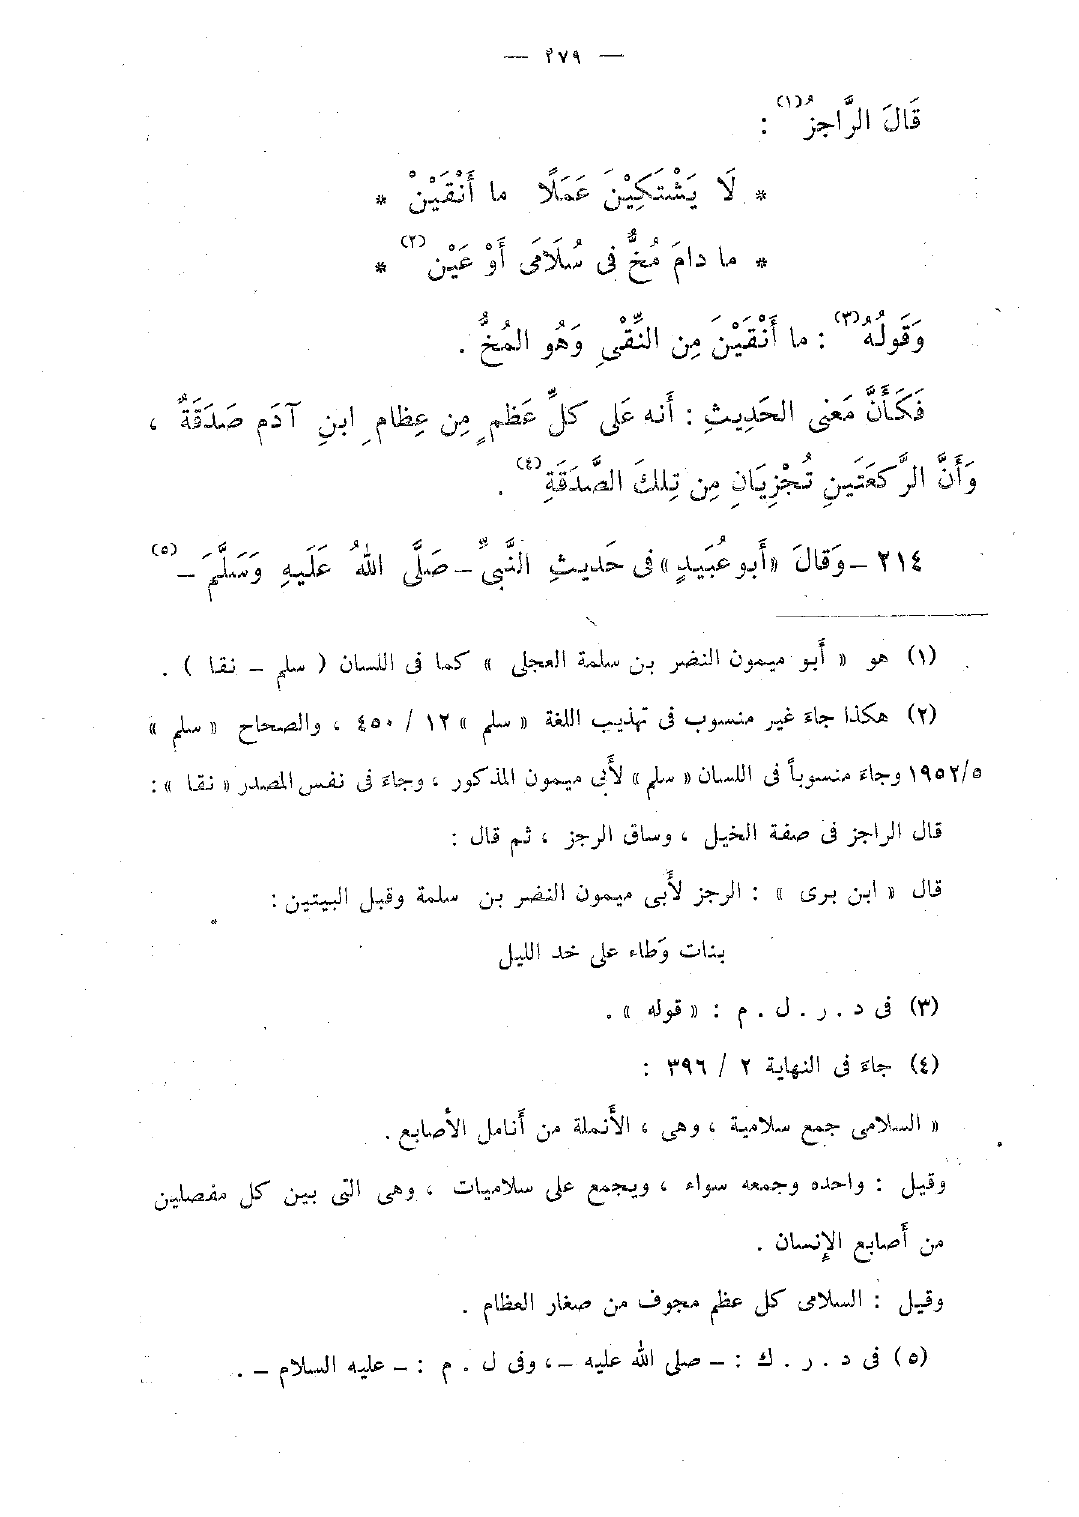 — ٢٧٩ —
قَالَ الرَّاجِزُ(١) :
* لَا يَشْتَكِيْنَ عَمَلًا ما أَنْقَيْنْ *
* ما دامَ مُخٌّ فى سُلَامَى أَوْ عَيْن(٢) *
وَقَولُهُ(٣) : ما أَنْقَيْنَ مِن النِّقْىِ وَهُو المُخُّ .
فَكَأَنَّ مَعْنى الحَدِيثِ : أَنه عَلى كلِّ عَظمٍ مِن عِظامِ ابنِ آدَم صَدَقَةٌ ،
وَأَنَّ الرَّكعَتَينِ تُجْزِيَانِ مِن تِلكَ الصَّدَقَةِ(٤) .
٢١٤ – وَقَالَ «أَبو عُبَيدٍ» فى حَديثِ النَّبىِّ – صَلَّى اللهُ عَلَيهِ وَسَلَّمَ –(٥)
(١) هو « أَبو ميمون النضر بن سلمة العجلى » كما فى اللسان ( سلم – نقا ) .
(٢) هكذا جاءَ غير منسوب فى تهذيب اللغة « سلم » ١٢ / ٤٥٠ ، والصحاح « سلم »
١٩٥٢/٥ وجاءَ منسوباً فى اللسان « سلم » لأَبى ميمون المذكور ، وجاءَ فى نفس المصدر « نقا » :
قال الراجز فى صفة الخيل ، وساق الرجز ، ثم قال :
قال « ابن برى » : الرجز لأَبى ميمون النضر بن سلمة وقبل البيتين :
بنات وَطاء على خد الليل
(٣) فى د . ر . ل . م : « قوله » .
(٤) جاءَ فى النهاية ٢ / ٣٩٦ :
« السلامى جمع سلامية ، وهى ، الأَنملة من أَنامل الأَصابع .
وقيل : واحده وجمعه سواء ، ويجمع على سلاميات ، وهى التى بين كل مفصلين
من أَصابع الإِنسان .
وقيل : السلامى كل عظم مجوف من صغار العظام .
(٥) فى د . ر . ك : – صلى الله عليه – ، وفى ل . م : – عليه السلام – .